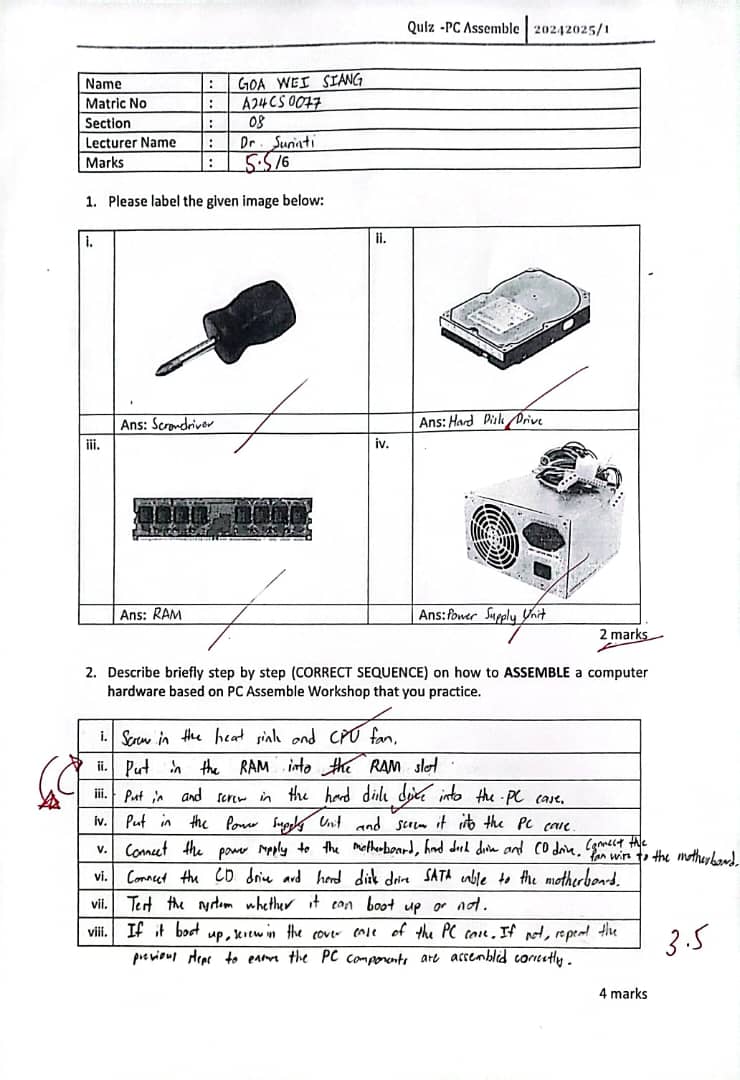 Quiz -PC Assemble 20242025/1
Name : GOA WEI SIANG
Matric No : A24CS0077
Section : 08
Lecturer Name : Dr. Suriati
Marks : 5.5/6
1. Please label the given image below:
i. ii.
Ans: Screwdriver Ans: Hard Disk Drive
iii. iv.
Ans: RAM Ans: Power Supply Unit
2 marks
2. Describe briefly step by step (CORRECT SEQUENCE) on how to ASSEMBLE a computer
hardware based on PC Assemble Workshop that you practice.
i. Screw in the heat sink and CPU fan.
ii. Put in the RAM into the RAM slot
iii. Put in and screw in the hard disk drive into the PC case.
iv. Put in the Power Supply Unit and screw it into the PC case.
v. Connect the power supply to the motherboard, hard disk drive and CD drive. Connect the
fan wire to the motherboard.
vi. Connect the CD drive and hard disk drive SATA cable to the motherboard.
vii. Test the system whether it can boot up or not.
viii. If it boot up, screw in the cover case of the PC case. If not, repeat the
previous steps to ensure the PC components are assembled correctly.
3.5
4 marks